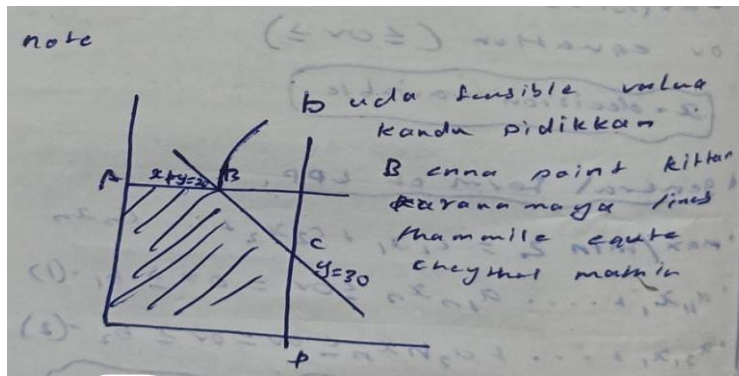 note
b uda feasible value
kandu pidikkan
B enna point kittan
karana maya lines
thammile equte
cheythal mathin
A
B
C
y=30
P